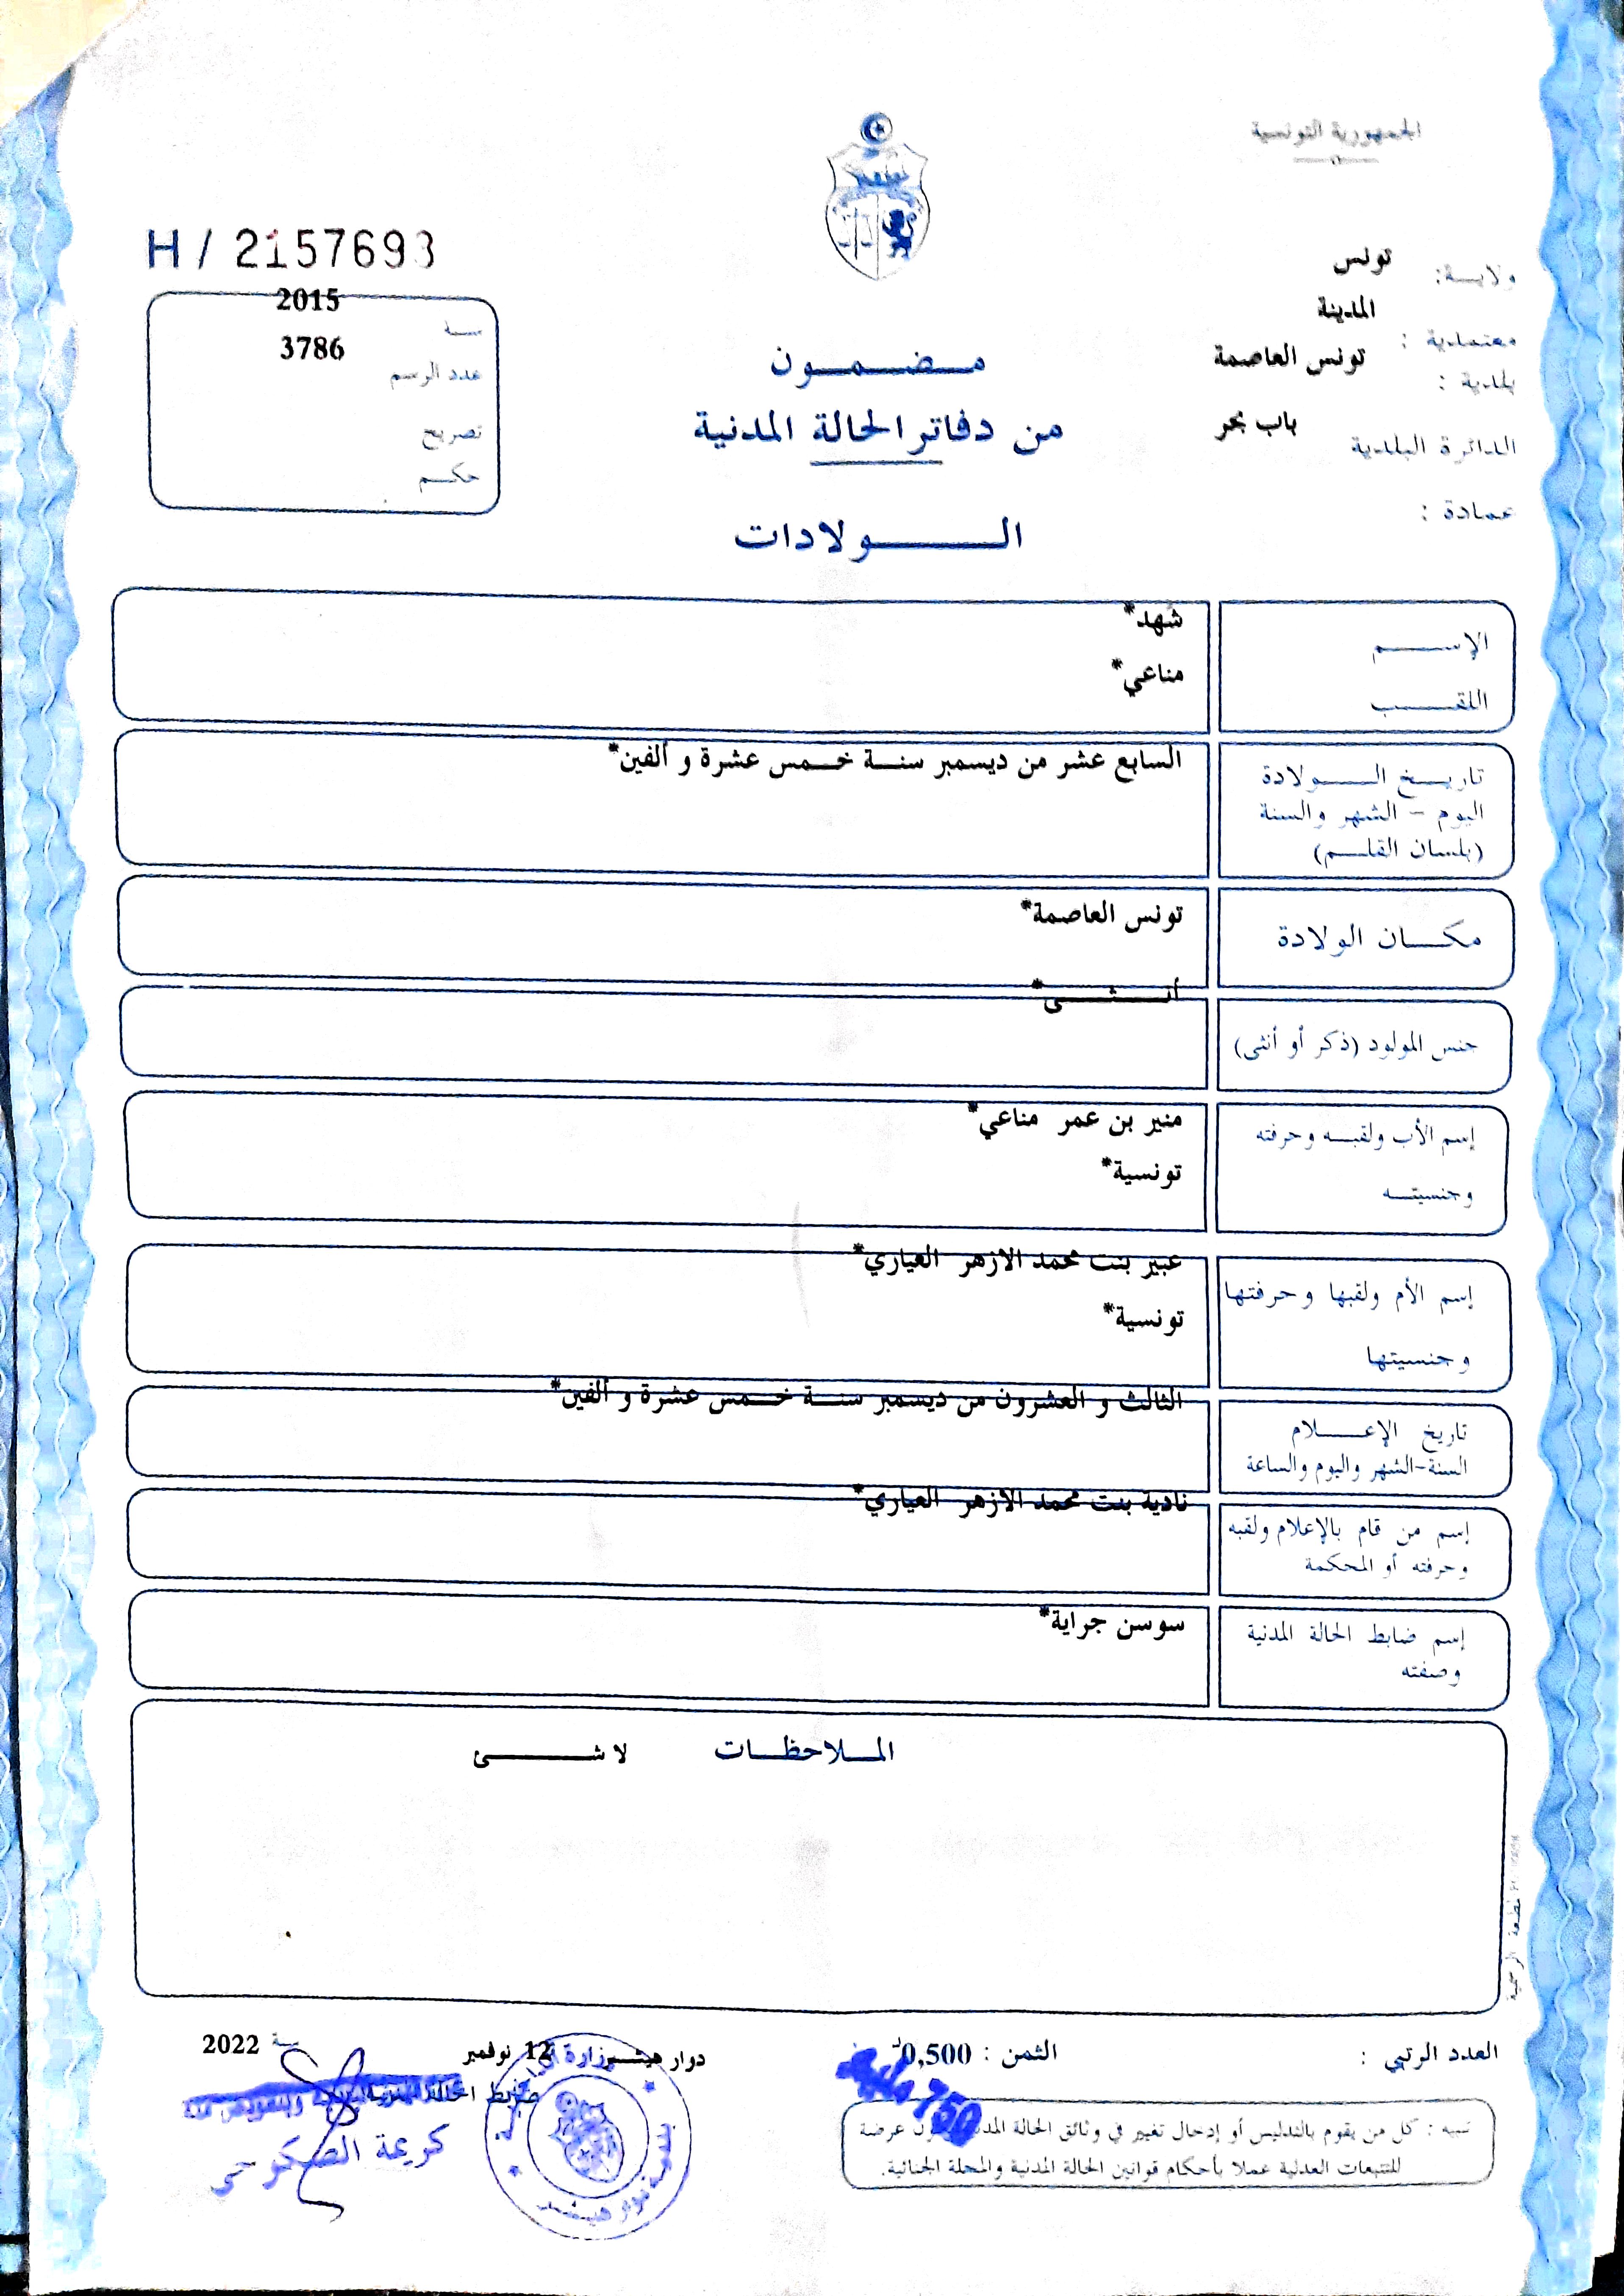 الجمهورية التونسية
H / 2157693
ولايـــة: تونس
معتمدية : المدينة
بلدية : تونس العاصمة
الدائرة البلدية باب بحر
عمادة :
سنة 2015
عدد الرسم 3786
تصريح
حكم
مضمون
من دفاتر الحالة المدنية
الولادات
الإسم شهد*
اللقب مناعي*
تاريخ الولادة السابع عشر من ديسمبر سنة خمس عشرة و ألفين*
اليوم - الشهر والسنة
(بلسان القلم)
مكان الولادة تونس العاصمة*
جنس المولود (ذكر أو أنثى) أنثى*
إسم الأب ولقبه وحرفته منير بن عمر مناعي*
وجنسيته تونسية*
إسم الأم ولقبها وحرفتها عبير بنت محمد الازهر العياري*
وجنسيتها تونسية*
تاريخ الإعلام الثالث و العشرون من ديسمبر سنة خمس عشرة و ألفين*
السنة-الشهر واليوم والساعة
إسم من قام بالإعلام ولقبه نادية بنت محمد الازهر العياري*
وحرفته أو المحكمة
إسم ضابط الحالة المدنية سوسن جراية*
وصفته
الملاحظات لا شئ
العدد الرتبي :
الثمن : 0,500
750
دوار هيشر 12 نوفمبر سنة 2022
ضابط الحالة المدنية
كريمة الصكوحي
بلدية دوار هيشر
تنبيه : كل من يقوم بالتدليس أو إدخال تغيير في وثائق الحالة المدنية عرضة
للتتبعات العدلية عملا بأحكام قوانين الحالة المدنية والمجلة الجنائية.